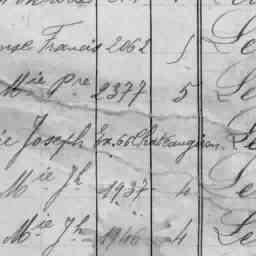 Francis 2062 5 Le
Mie Pre 2377 5 Le
Joseph Ex. 60 Chateauguien. Le
Mie Jh 1937 4 Le
Mie Jh 1946 4 Le